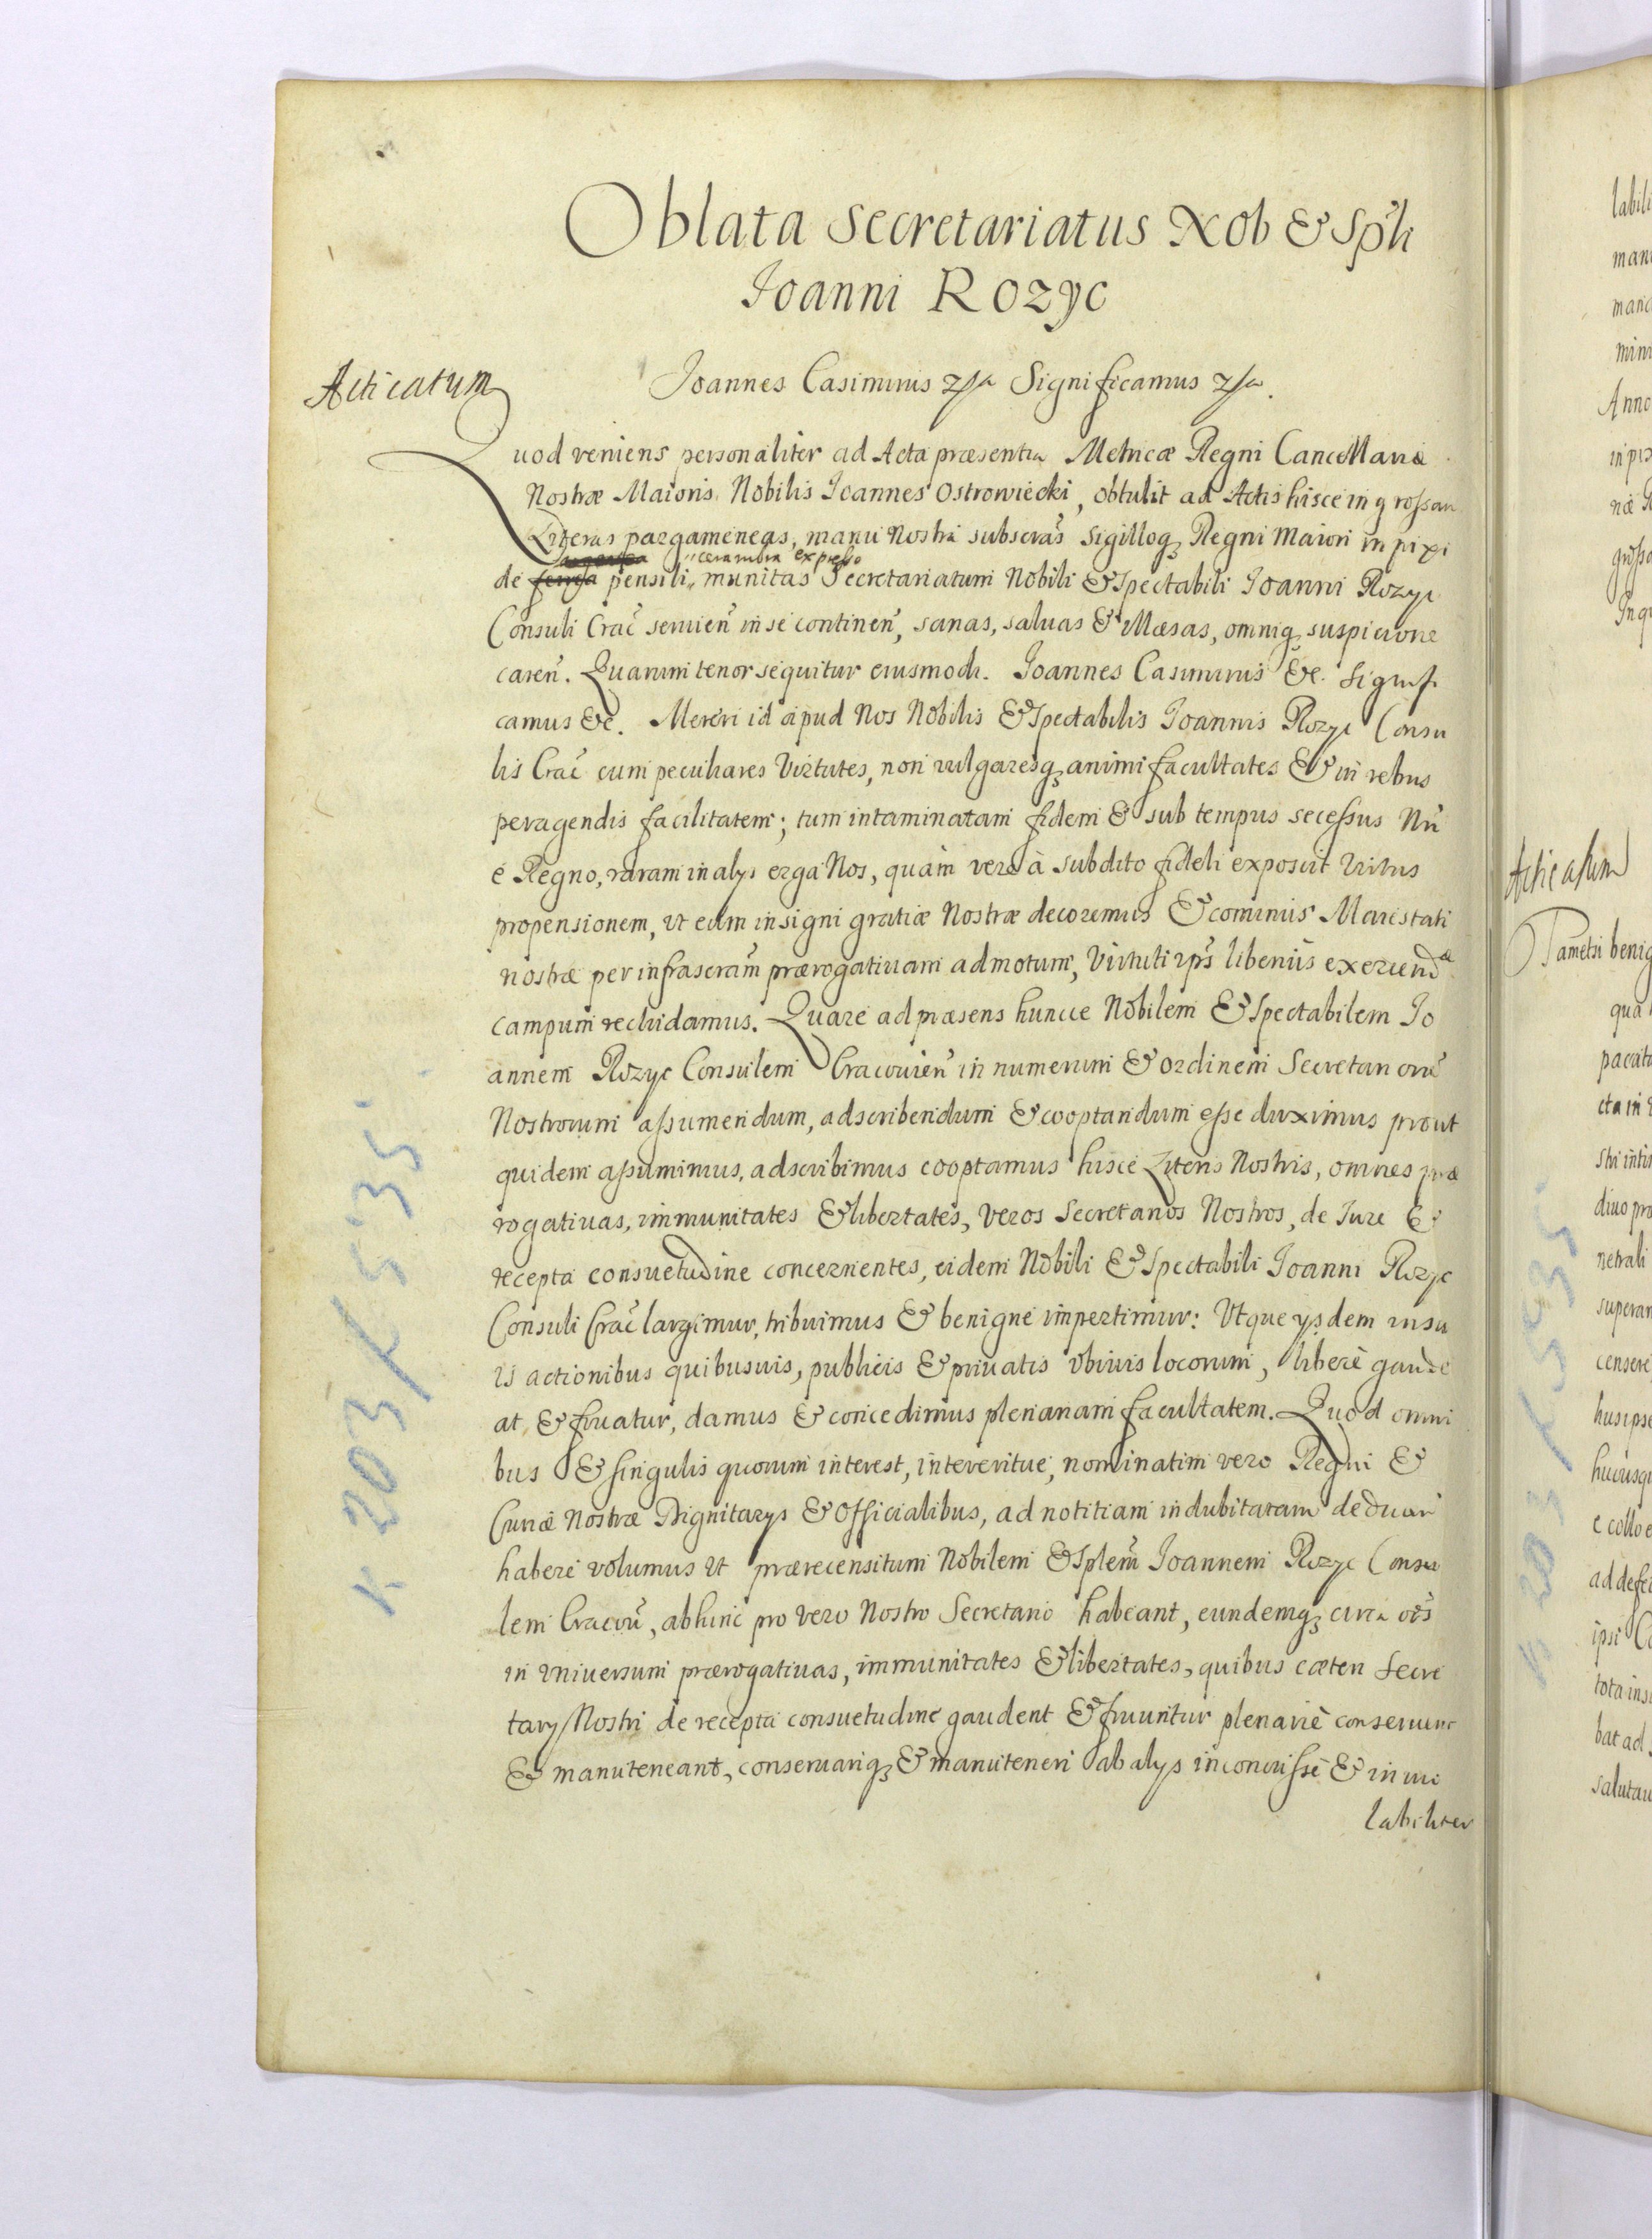 Oblata Secretariatus Nob & Spli
Joanni Rozyc
Acticatum
Joannes Casimirus Significamus
Quod veniens personaliter ad Acta præsentia Metricæ Regni Cancellariæ
Nostræ Maioris Nobilis Joannes Ostrowiecki, obtulit ad Actis hisce ingrossan
Literas pargameneas, manu Nostra subscras Sigilloq Regni Maiori in pixi
argentea in ceram expresso
de pensili munitas Secretariatum Nobili & Spectabili Joanni Rozyc
Consuli Crac servien in se continen, sanas, saluas & illæsas, omniq suspicione
caren. Quarum tenor sequitur eiusmodi. Joannes Casimirus &c. Signifi
camus &c. Mereri id apud Nos Nobilis & Spectabilis Joannis Rozyc Consu
lis Crac cum peculiares Virtutes, non vulgaresq animi facultates & in rebus
peragendis facilitatem; tum intaminatam fidem & sub tempus secessus Nri
è Regno, raram in alys erga Nos, quam vero à subdito fideli exposcit Virtus
propensionem, vt eum insigni gratiæ Nostræ decoremus & cominus Maiestati
nostræ per infrascram prærogatiuam admotum, Virtuti ips libenius exerendæ
campum recludamus. Quare ad præsens huncce Nobilem & Spectabilem Jo
annem Rozyc Consulem Cracouien in numerum & ordinem Secretarioru
Nostrorum assumendum, adscribendum & cooptandum esse duximus prout
quidem assumimus, adscribimus cooptamus hisce Literis Nostris, omnes præ
rogatiuas, immunitates & libertates, veros Secretarios Nostros, de Jure &
recepta consuetudine concernentes, eidem Nobili & Spectabili Joanni Rozyc
Consuli Crac largimur, tribuimus & benigne impertimur: Vtque ysdem in su
is actionibus quibusuis, publicis & priuatis vbiuis locorum, liberè gaude
at & fruatur, damus & concedimus plenariam facultatem. Quod omni
bus & singulis quorum interest, intereritue, nominatim vero Regni &
Curiæ Nostræ Dignitarys & Officialibus, ad notitiam indubitatam deduci
habere volumus vt prærecensitum Nobilem & Splem Joannem Rozyc Consu
lem Cracou, abhinc pro vero Nostro Secretario habeant, eundemq circa oes
in vniversum prærogatiuas, immunitates & libertates, quibus cæteri Secre
tary Nostri de recepta consuetudine gaudent & fruuntur plenariè conseruent
& manuteneant, conseruariq & manuteneri ab alys inconcusse & inuio
labiliter
K 203 f 535